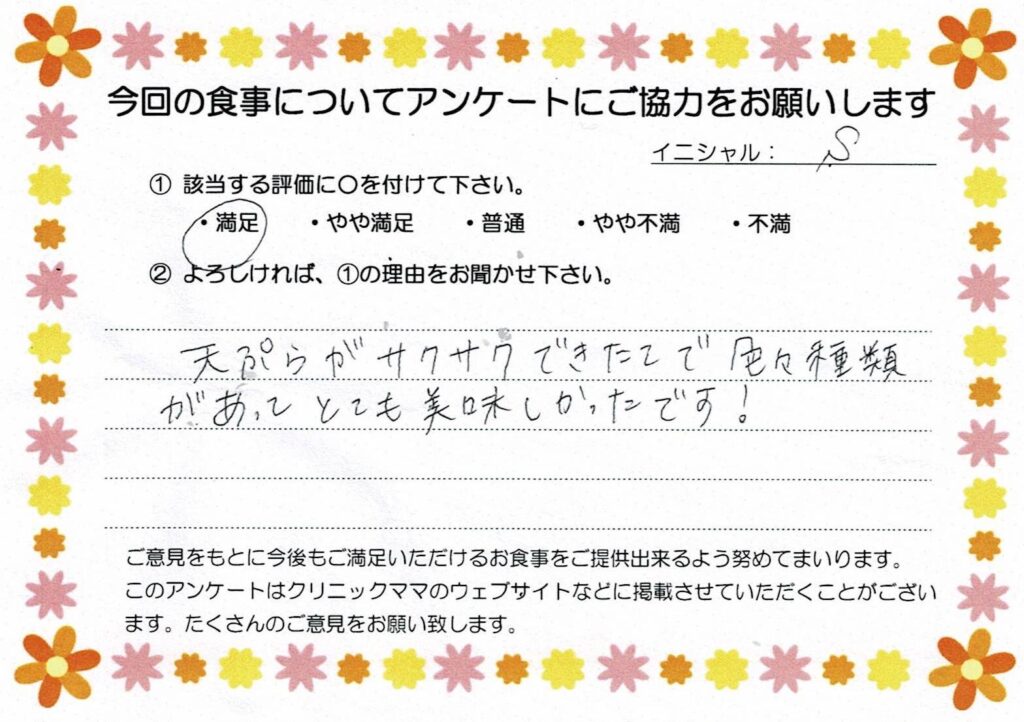 今回の食事についてアンケートにご協力をお願いします
イニシャル： S
① 該当する評価に〇を付けて下さい。
・満足 ・やや満足 ・普通 ・やや不満 ・不満
② よろしければ、①の理由をお聞かせ下さい。
天ぷらがサクサクできたてで色々種類
があってとても美味しかったです！
ご意見をもとに今後もご満足いただけるお食事をご提供出来るよう努めてまいります。
このアンケートはクリニックママのウェブサイトなどに掲載させていただくことがござい
ます。たくさんのご意見をお願い致します。